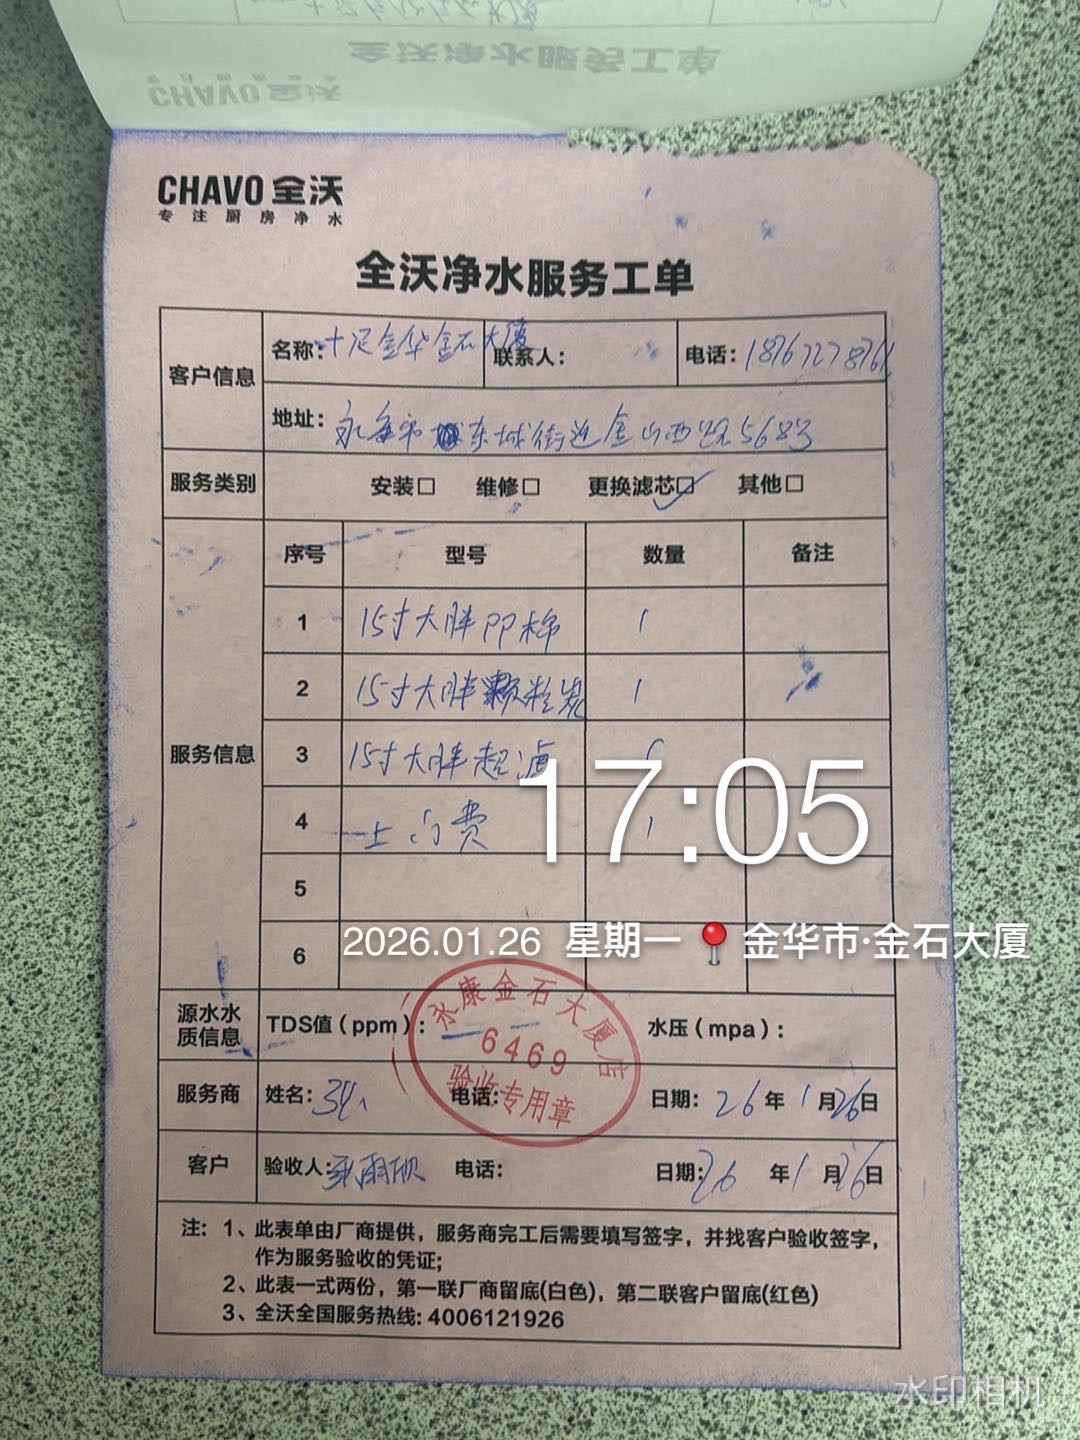 全沃净水服务工单
CHAVO 全沃
CHAVO 全沃
专注厨房净水
全沃净水服务工单
客户信息 名称:十足金华金石大厦 联系人: 电话:18767278761
地址: 永康市东城街道金山西路568号
服务类别 安装□ 维修□ 更换滤芯☑ 其他□
服务信息
序号 型号 数量 备注
1 15寸大胖PP棉 1
2 15寸大胖颗粒炭 1
3 15寸大胖超滤 1
4 上门费 1
5
6
17:05
2026.01.26 星期一 金华市·金石大厦
源水水质信息 TDS值(ppm): 水压(mpa):
永康金石大厦店
6469
验收专用章
服务商 姓名: 电话: 日期: 26年1月26日
客户 验收人: 电话: 日期: 26年1月26日
注: 1、此表单由厂商提供，服务商完工后需要填写签字，并找客户验收签字，
作为服务验收的凭证;
2、此表一式两份，第一联厂商留底(白色)，第二联客户留底(红色)
3、全沃全国服务热线: 4006121926
水印相机